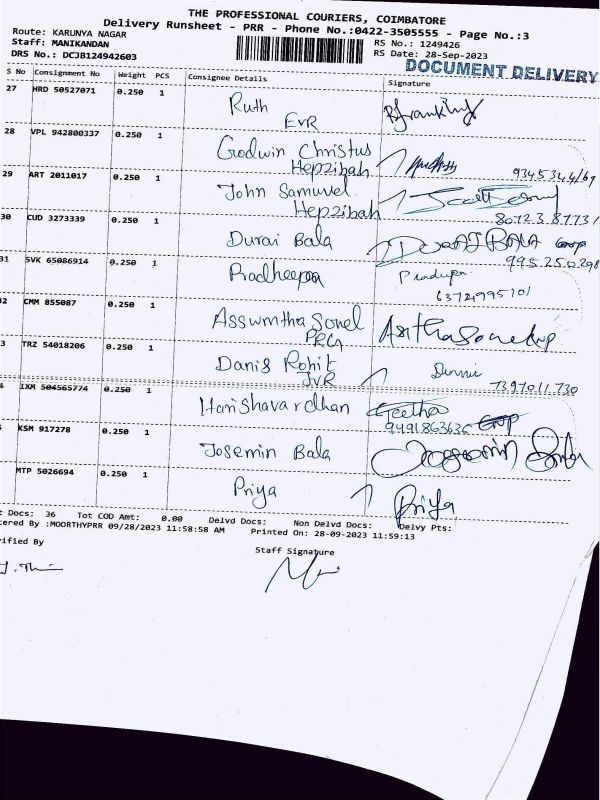 THE PROFESSIONAL COURIERS, COIMBATORE
Delivery Runsheet - PRR - Phone No.:0422-3505555 - Page No.:3
Route: KARUNYA NAGAR
Staff: MANIKANDAN
DRS No.: DCJB124942603
RS No.: 1249426
RS Date: 28-Sep-2023
DOCUMENT DELIVERY
S No Consignment No Weight PCS Consignee Details Signature
27 HRD 50527071 0.250 1 Ruth
EVR
28 VPL 942800337 0.250 1 Godwin Christus
Hepzibah
29 ART 2011017 0.250 1 John Samuvel
Hepzibah
30 CUD 3273339 0.250 1 Durai Bala DURAI BALA
31 SVK 65086914 0.250 1 Pradheepa Pradeepa
32 CMM 855087 0.250 1 Asswmtha Sonel
PRGA
3 TRZ 54018206 0.250 1 Danis Rohit
JVR 7397011730
4 IXM 504565774 0.250 1 Harishavardhan Geetha
9491863636
5 KSM 917278 0.250 1 Josemin Bala
MTP 5026694 0.250 1 Priya Priya
t Docs: 36 Tot COD Amt: 0.00 Delvd Docs: Non Delvd Docs: Delvy Pts:
tered By :MOORTHYPRR 09/28/2023 11:58:58 AM Printed On: 28-09-2023 11:59:13
rified By
Staff Signature